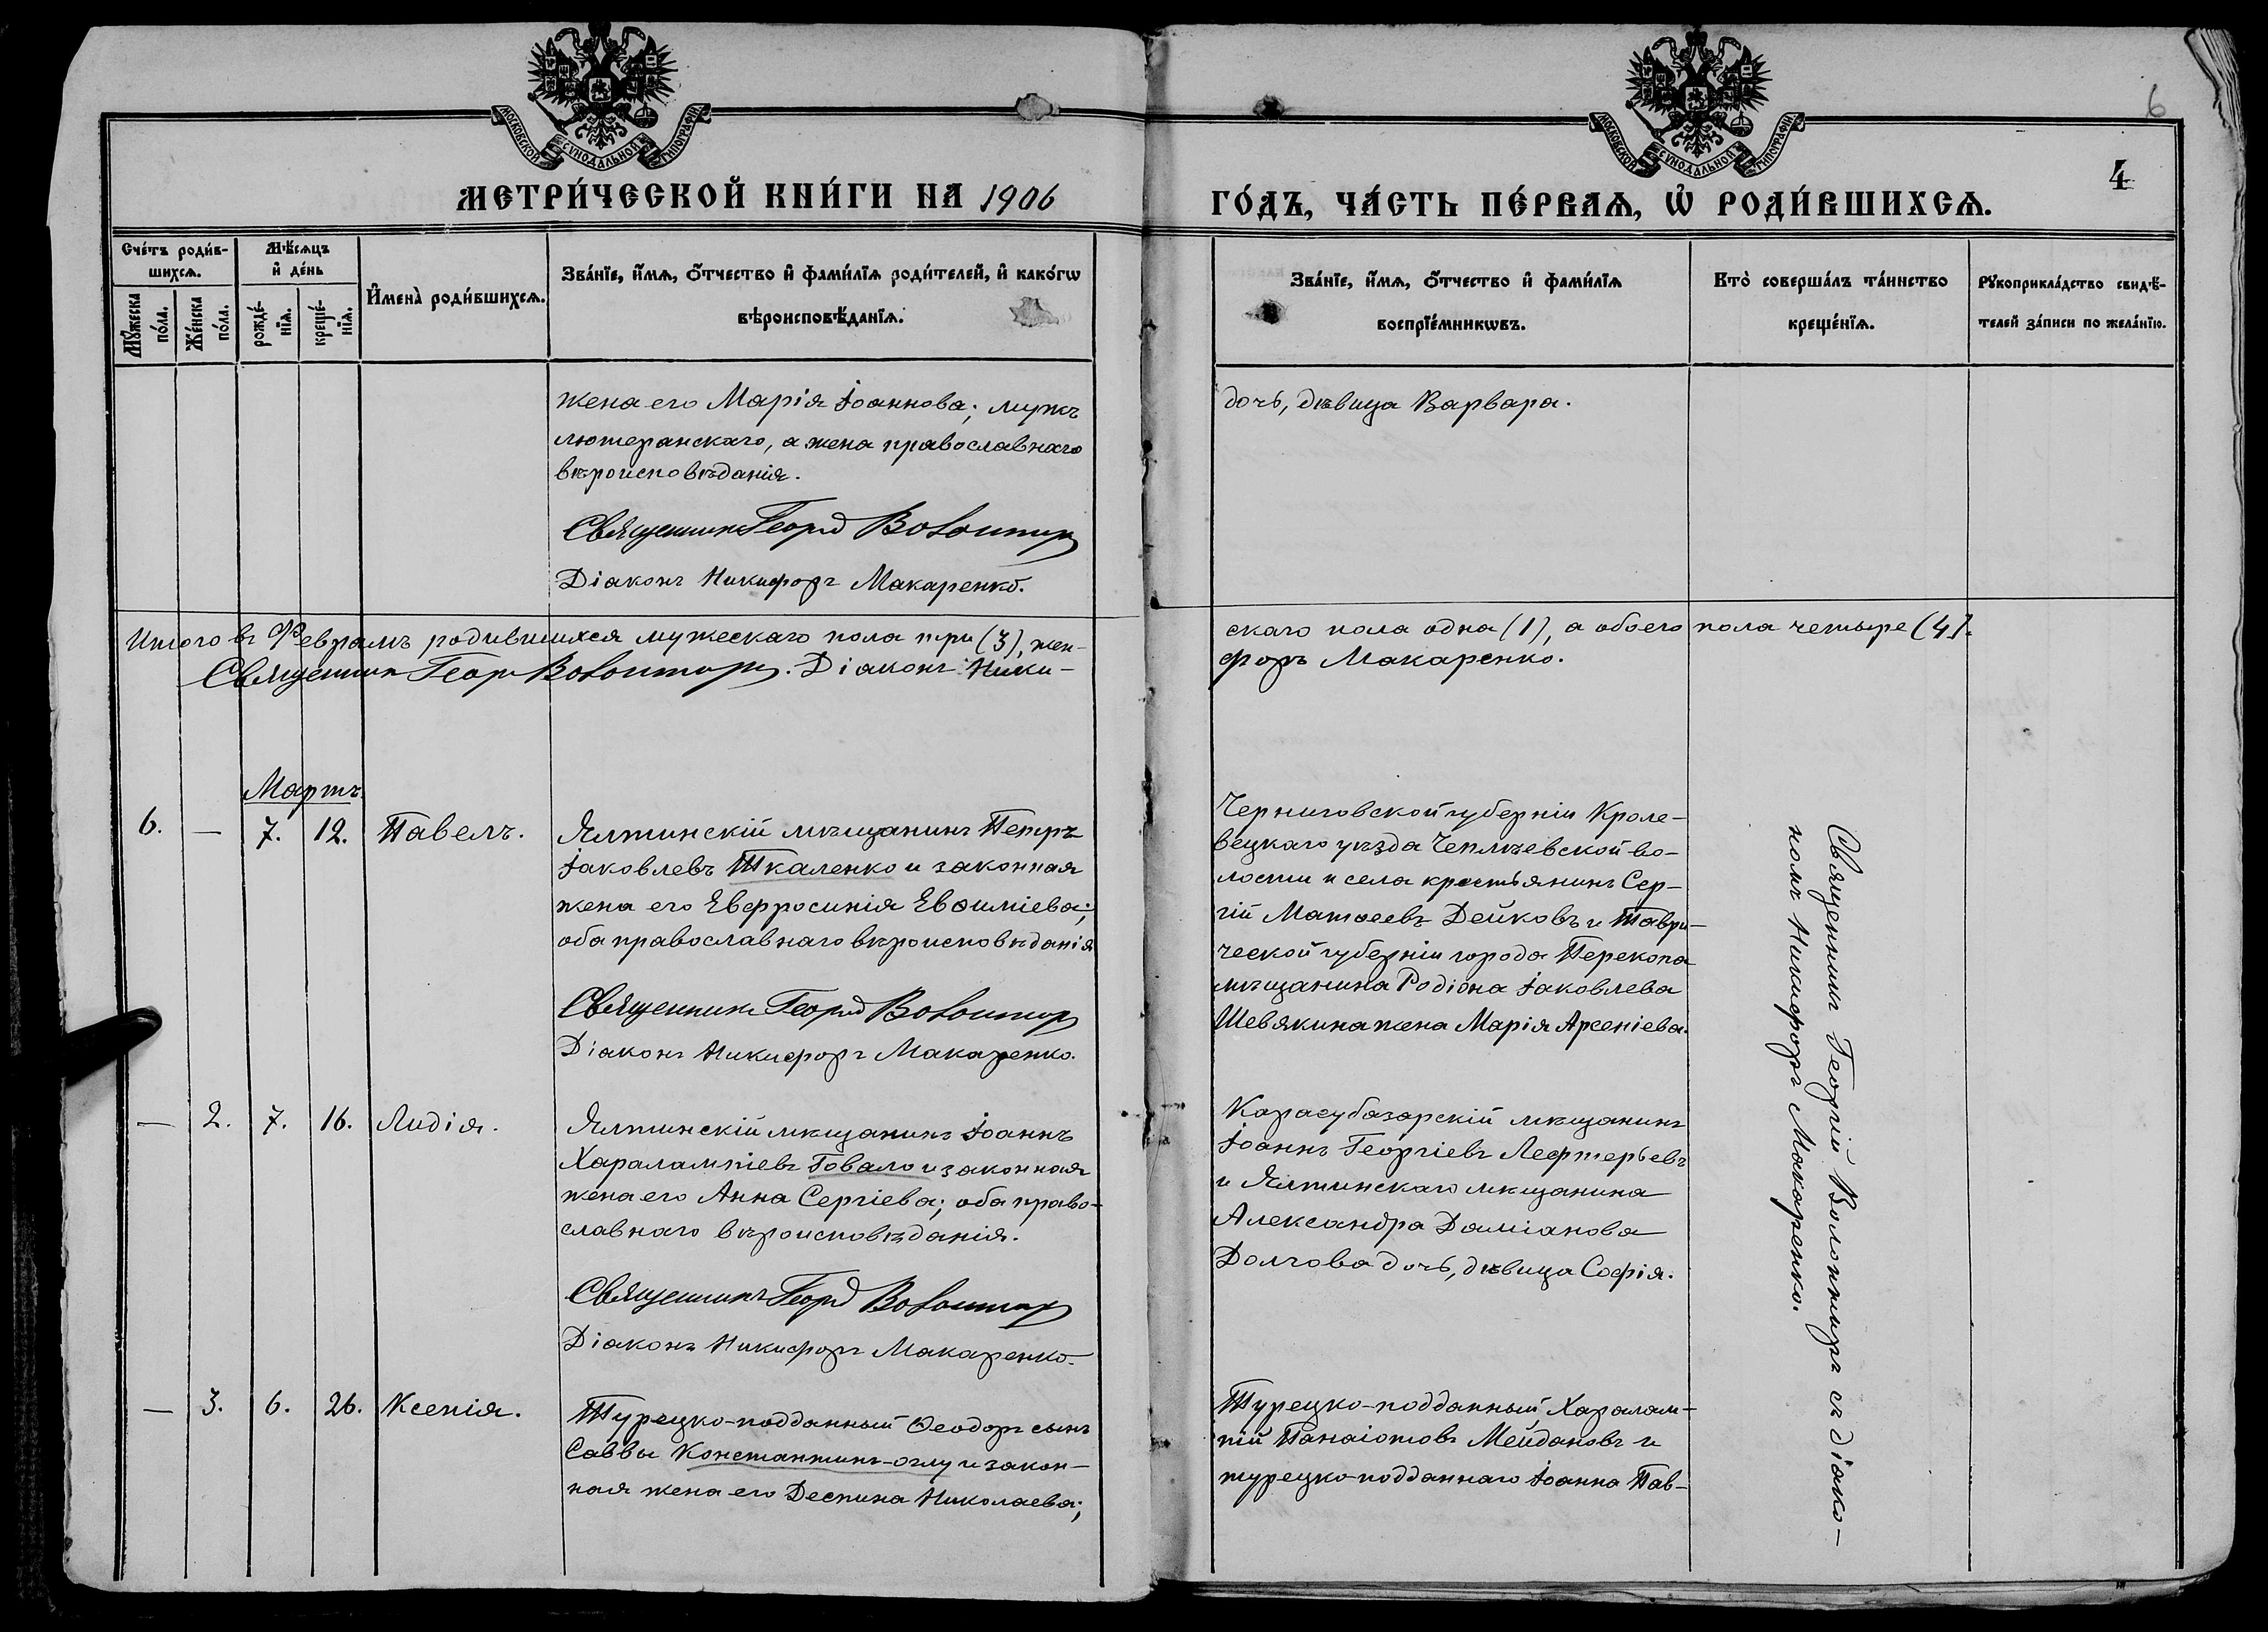 МОСКОВСКОЙ СѴНОДАЛЬНОЙ ТИПОГРАФІИ
МЕТРИ́ЧЕСКОЙ КНИ́ГИ НА 1906
Сче́тъ роди́в-
шихсѧ.
Мѣ́сѧцъ
и҆ де́нь
Мꙋ́жеска
по́ла.
Же́нска
по́ла.
рожде́-
нїѧ.
креще́-
нїѧ.
И҆мена̀ роди́вшихсѧ.
Зва́нїе, и҆́мѧ, ѻ҆́тчество и҆ фами́лїѧ роди́телей, и҆ како́гѡ
вѣроисповѣ́данїѧ.
жена его Марія Іоаннова; мужъ
лютеранскаго, а жена православнаго
вѣроисповѣданія.
Священникъ Георгій Волонтиръ
Діаконъ Никифоръ Макаренко.
Итого въ Февралѣ родившихся мужескаго пола три (3), жен-
Священникъ Георгій Волонтиръ. Діаконъ Ники-
Мартъ.
6. — 7. 12. Павелъ.
Ялтинскій мѣщанинъ Петръ
Іаковлевъ Ткаленко и законная
жена его Евфросинія Евѳиміева;
оба православнаго вѣроисповѣданія
Священникъ Георгій Волонтиръ
Діаконъ Никифоръ Макаренко.
— 2. 7. 16. Лидія.
Ялтинскій мѣщанинъ Іоаннъ
Харалампіевъ Говало и законная
жена его Анна Сергіева; оба право-
славнаго вѣроисповѣданія.
Священникъ Георгій Волонтиръ
Діаконъ Никифоръ Макаренко.
— 3. 6. 26. Ксенія.
Турецко-подданный Ѳеодоръ сынъ
Саввы Константинъ-оглу и закон-
ная жена его Деспина Николаева;
МОСКОВСКОЙ СѴНОДАЛЬНОЙ ТИПОГРАФІИ
6
4
ГО́ДЪ, ЧА́СТЬ ПЕ́РВАѦ, Ѡ҆ РОДИ́ВШИХСѦ.
Зва́нїе, и҆́мѧ, ѻ҆́тчество и҆ фами́лїѧ
воспрїе́мникѡвъ.
Кто̀ соверша́лъ та́инство
креще́нїѧ.
Рꙋкоприкла́дство свидѣ́-
телей за́писи по жела́нїю.
дочь, дѣвица Варвара.
скаго пола одна (1), а обоего пола четыре (4).
форъ Макаренко.
Черниговской губерніи Кроле-
вецкаго уѣзда Чеплѣевской во-
лости и села крестьянинъ Сер-
гій Матѳеевъ Дейковъ и Таври-
ческой губерніи города Перекопа
мѣщанина Родіона Іаковлева
Шевякина жена Марія Арсеніева.
Карасубазарскій мѣщанинъ
Іоаннъ Георгіевъ Лефтерьевъ
и Ялтинскаго мѣщанина
Александра Даміанова
Долгова дочь, дѣвица Софія.
Турецко-подданный Харалам-
пій Панаіотовъ Мейдановъ и
турецко-подданнаго Іоанна Пав-
Священникъ Георгій Волонтиръ съ діако-
номъ Никифоромъ Макаренко.